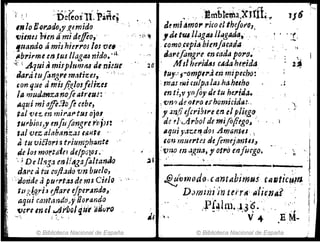 Deseos II. Parte,
en lo llorado, y gemido
vienes bien à mi desseo,
quando à mis hierros los veo
abrirme en tus llagas nido.
Aqui à mis plumas de nieue
dara tu sangre matizes,
con que à mis siglos felizes
la mudanza no se atreue:
aqui mi affecto se cebe,
tal vez en mirar tus ojos
turbios, y en su sangre rojos:
tal vez alabanzas cante
à tu victoria triumphante
de los mortales despojos.
De llaga en llaga saltando
darè à tu costado vn buelo,
donde à puertas de mi Cielo
tu gloria estare esperando,
aqui cantando, y llorando
vere en el Arbol que adoro
Emblema XIIII.
156
de mi amor rico el thesoro,
y de tu llaga llagada,
como cepia bien jacada
dare sangre en cada poro.
Mil heridas cada herida
tuya romperà en mi pecho:
mas mi culpa las ha hecho
en ti, y yo soy de tu herida.
vno de otro es homicida:
y assi escribire en el pliego
de el Arbol de mi sosiego,
aqui yazen dos Amantes
con muertes de semejantes,
vno en agua, y otro en fuego.
Quomodo cantabimus canticum
Domini in terra aliena?
Psalm. 136.
V 4
EM-
© Biblioteca Nacional de España
© Biblioteca Nacional de España